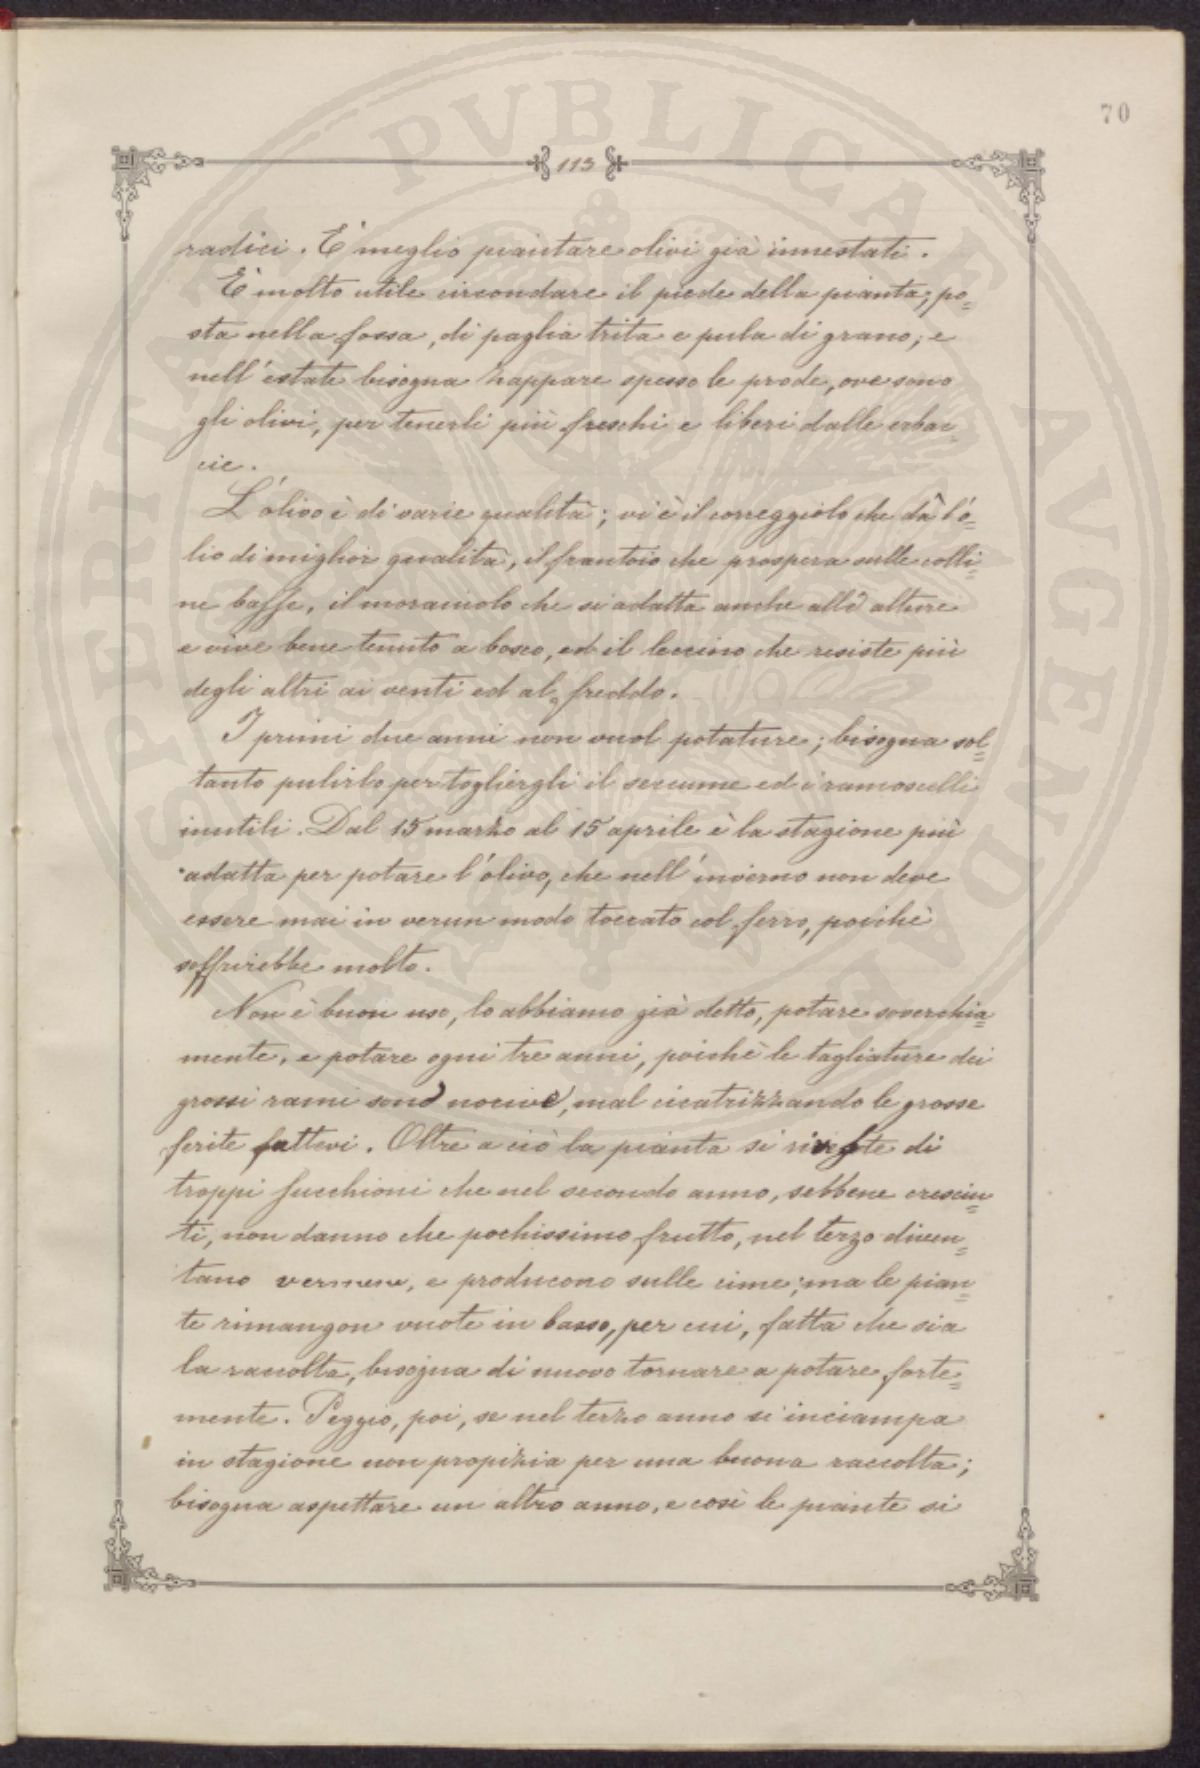 70
113
radici. È meglio piantare olivi già innestati.
È molto utile circondare il piede della pianta, po=
sta nella fossa, di paglia trita e pula di grano; e
nell'estate bisogna zappare spesso le prode, ove sono
gli olivi, per tenerli più freschi e liberi dalle erbac=
cie.
L'olivo è di varie qualità; vi è il correggiolo che dà l'o=
lio di miglior qualità, il frantoio che prospera sulle colli=
ne basse, il moraiolo che si adatta anche alle alture
e vive bene tenuto a bosco, ed il leccino che resiste più
degli altri ai venti ed al freddo.
I primi due anni non vuol potature; bisogna sol=
tanto pulirlo per togliergli il seccume ed i ramoscelli
inutili. Dal 15 marzo al 15 aprile è la stagione più
adatta per potare l'olivo, che nell'inverno non deve
essere mai in verun modo toccato col ferro, poichè
soffrirebbe molto.
Non è buon uso, lo abbiamo già detto, potare soverchia=
mente, e potare ogni tre anni, poichè le tagliature dei
grossi rami sono nocive, mal cicatrizzando le grosse
ferite fattevi. Oltre a ciò la pianta si riveste di
troppi succhioni che nel secondo anno, sebbene cresciu=
ti, non danno che pochissimo frutto, nel terzo diven=
tano vermene, e producono sulle cime; ma le pian=
te rimangon vuote in basso, per cui, fatta che sia
la raccolta, bisogna di nuovo tornare a potare forte=
mente. Peggio, poi, se nel terzo anno si inciampa
in stagione non propizia per una buona raccolta;
bisogna aspettare un altro anno, e così le piante si
PERITATI PVBLICAE AVGENDAE